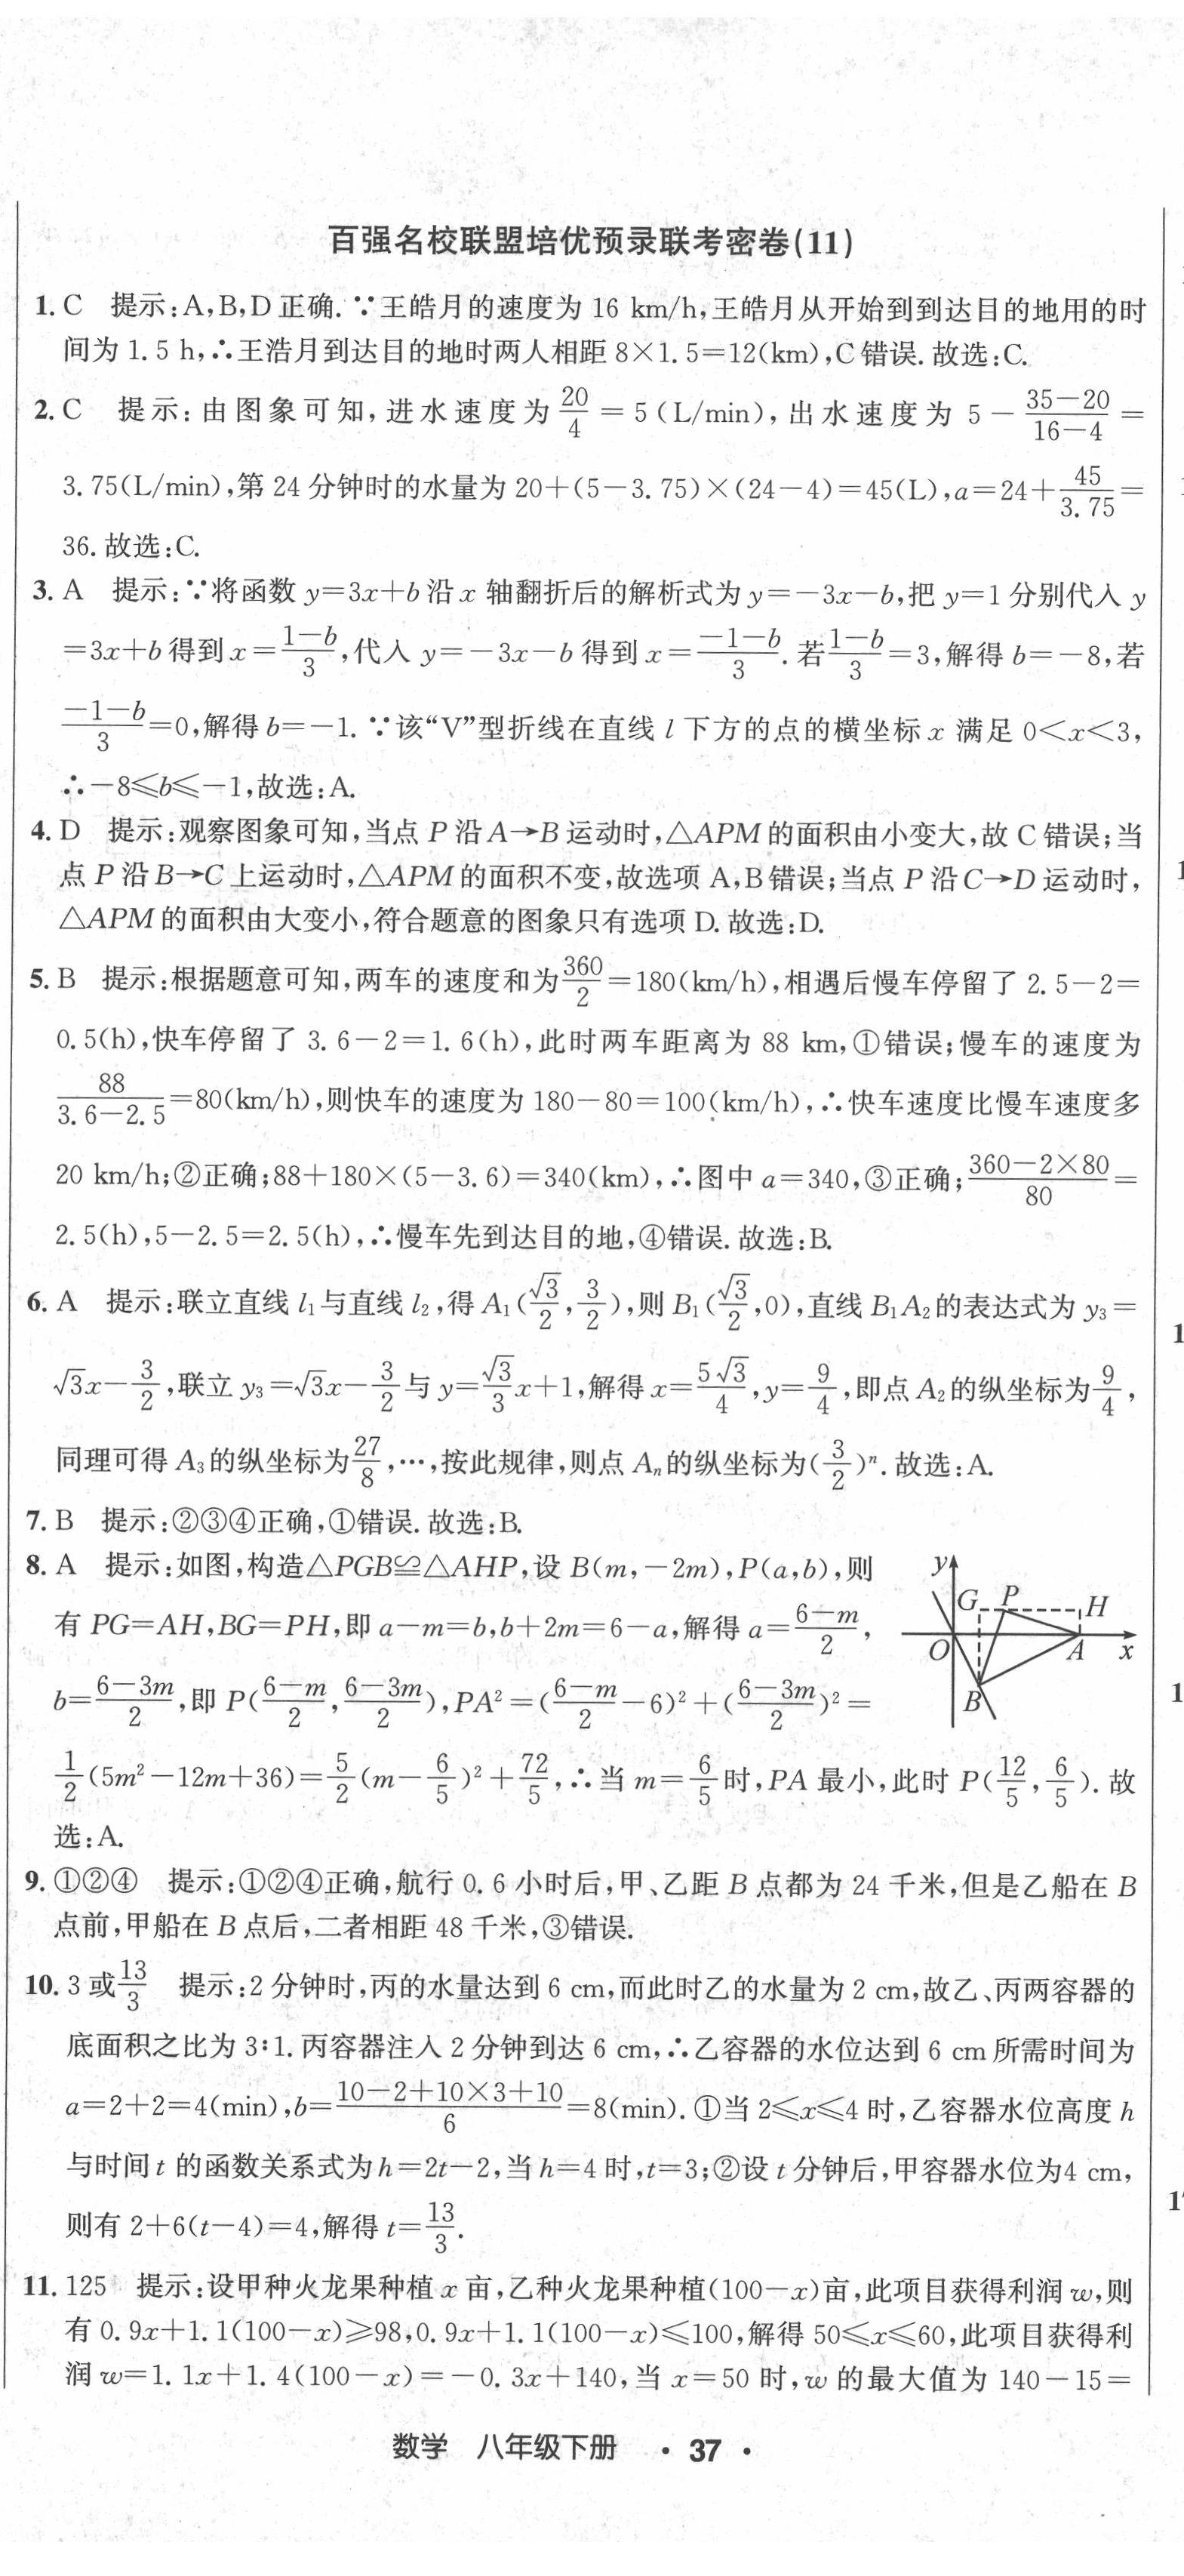 百强名校联盟培优预录联考密卷(11)
1. C 提示:A,B,D正确. ∵王皓月的速度为 16 km/h,王皓月从开始到到达目的地用的时
间为 1.5 h,∴王浩月到达目的地时两人相距 8×1.5=12(km),C错误. 故选:C.
2. C 提示:由图象可知,进水速度为 20/4 = 5(L/min),出水速度为 5 - (35-20)/(16-4) =
3.75(L/min),第 24 分钟时的水量为 20+(5-3.75)×(24-4)=45(L),a=24+45/3.75=
36. 故选:C.
3. A 提示:∵将函数 y=3x+b 沿 x 轴翻折后的解析式为 y=-3x-b,把 y=1 分别代入 y
=3x+b 得到 x=(1-b)/3,代入 y=-3x-b 得到 x=(-1-b)/3. 若(1-b)/3=3,解得 b=-8,若
(-1-b)/3=0,解得 b=-1. ∵该“V”型折线在直线 l 下方的点的横坐标 x 满足 0<x<3,
∴-8≤b≤-1,故选:A.
4. D 提示:观察图象可知,当点 P 沿 A→B 运动时,△APM 的面积由小变大,故 C 错误;当
点 P 沿 B→C 上运动时,△APM 的面积不变,故选项 A,B错误;当点 P 沿 C→D 运动时,
△APM 的面积由大变小,符合题意的图象只有选项 D. 故选:D.
5. B 提示:根据题意可知,两车的速度和为 360/2=180(km/h),相遇后慢车停留了 2.5-2=
0.5(h),快车停留了 3.6-2=1.6(h),此时两车距离为 88 km,①错误;慢车的速度为
88/(3.6-2.5)=80(km/h),则快车的速度为 180-80=100(km/h),∴快车速度比慢车速度多
20 km/h;②正确;88+180×(5-3.6)=340(km),∴图中 a=340,③正确;(360-2×80)/80=
2.5(h),5-2.5=2.5(h),∴慢车先到达目的地,④错误. 故选:B.
6. A 提示:联立直线 l₁与直线 l₂,得 A₁(√3/2,3/2),则 B₁(√3/2,0),直线 B₁A₂的表达式为 y₃=
√3x-3/2,联立 y₃=√3x-3/2与 y=√3/3x+1,解得 x=5√3/4,y=9/4,即点 A₂的纵坐标为9/4,
同理可得 A₃的纵坐标为27/8,…,按此规律,则点 Aₙ的纵坐标为(3/2)ⁿ. 故选:A.
7. B 提示:②③④正确,①错误. 故选:B.
8. A 提示:如图,构造△PGB≌△AHP,设 B(m,-2m),P(a,b),则
有 PG=AH,BG=PH,即 a-m=b,b+2m=6-a,解得 a=(6-m)/2,
b=(6-3m)/2,即 P((6-m)/2,(6-3m)/2),PA²=((6-m)/2-6)²+((6-3m)/2)²=
1/2(5m²-12m+36)=5/2(m-6/5)²+72/5,∴当 m=6/5时,PA 最小,此时 P(12/5,6/5). 故
选:A.
y
G P H
O A x
B
9. ①②④ 提示:①②④正确,航行 0.6 小时后,甲、乙距 B 点都为 24 千米,但是乙船在 B
点前,甲船在 B 点后,二者相距 48 千米,③错误.
10. 3 或13/3 提示:2 分钟时,丙的水量达到 6 cm,而此时乙的水量为 2 cm,故乙、丙两容器的
底面积之比为 3:1. 丙容器注入 2 分钟到达 6 cm,∴乙容器的水位达到 6 cm 所需时间为
a=2+2=4(min),b=(10-2+10×3+10)/6=8(min). ①当 2≤x≤4 时,乙容器水位高度 h
与时间 t 的函数关系式为 h=2t-2,当 h=4 时,t=3;②设 t 分钟后,甲容器水位为4 cm,
则有 2+6(t-4)=4,解得 t=13/3.
11. 125 提示:设甲种火龙果种植 x 亩,乙种火龙果种植(100-x)亩,此项目获得利润 w,则
有 0.9x+1.1(100-x)≥98,0.9x+1.1(100-x)≤100,解得 50≤x≤60,此项目获得利
润 w=1.1x+1.4(100-x)=-0.3x+140,当 x=50 时,w 的最大值为 140-15=
数学 八年级下册 · 37 ·